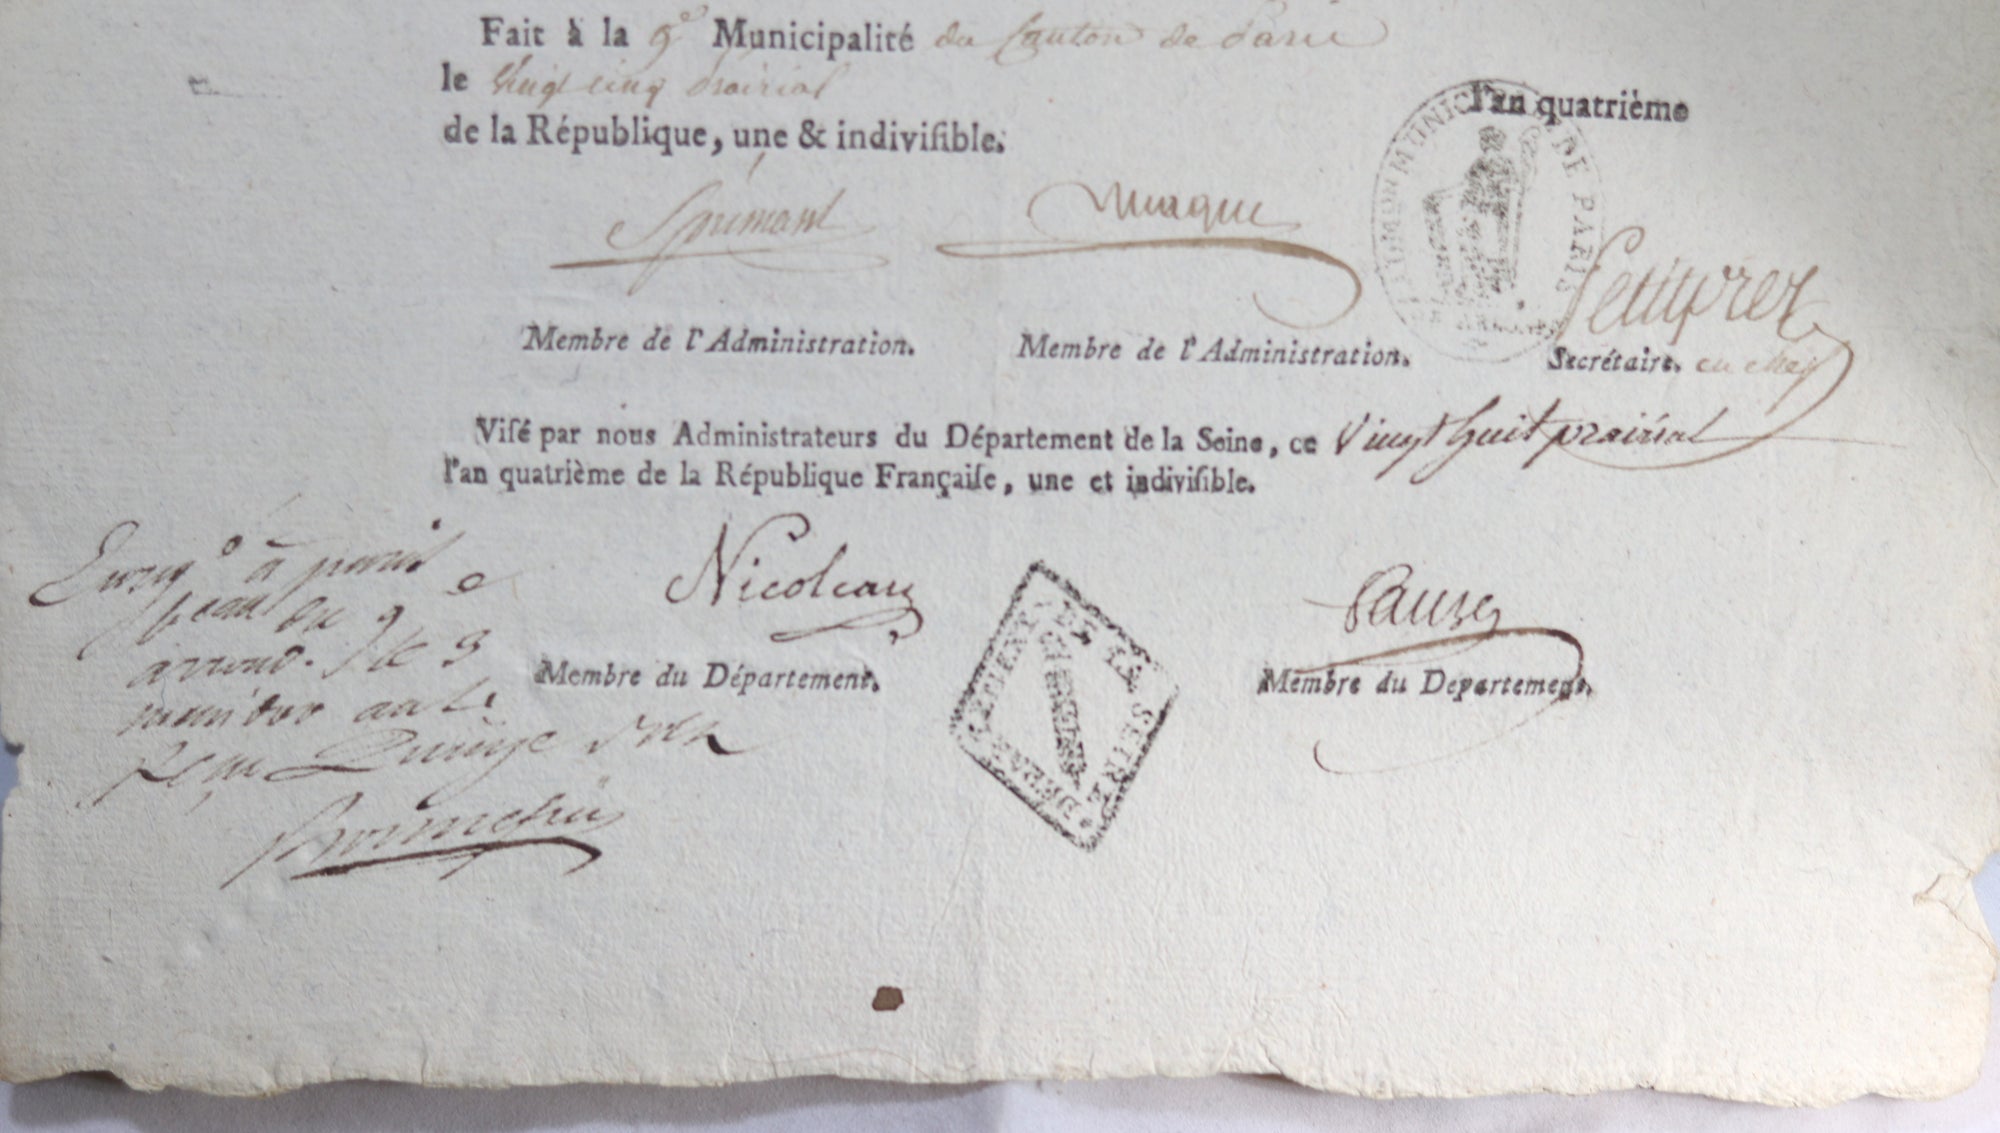 Fait à la 9e Municipalité du Canton de Paris
le vingt cinq prairial l'an quatrième
de la République, une & indivisible.
MUNICIP DE PARIS
Membre de l'Administration. Membre de l'Administration. Secrétaire. en chef
Visé par nous Administrateurs du Département de la Seine, ce Vingt huit prairial
l'an quatrième de la République Française, une et indivisible.
Nicoleau
Membre du Département. Membre du Departement.
DEPARTEMENT DE LA SEINE
Enreg.o à paris
beau du 9e
arrond. le 3
messidor an 4
reçu Quinze